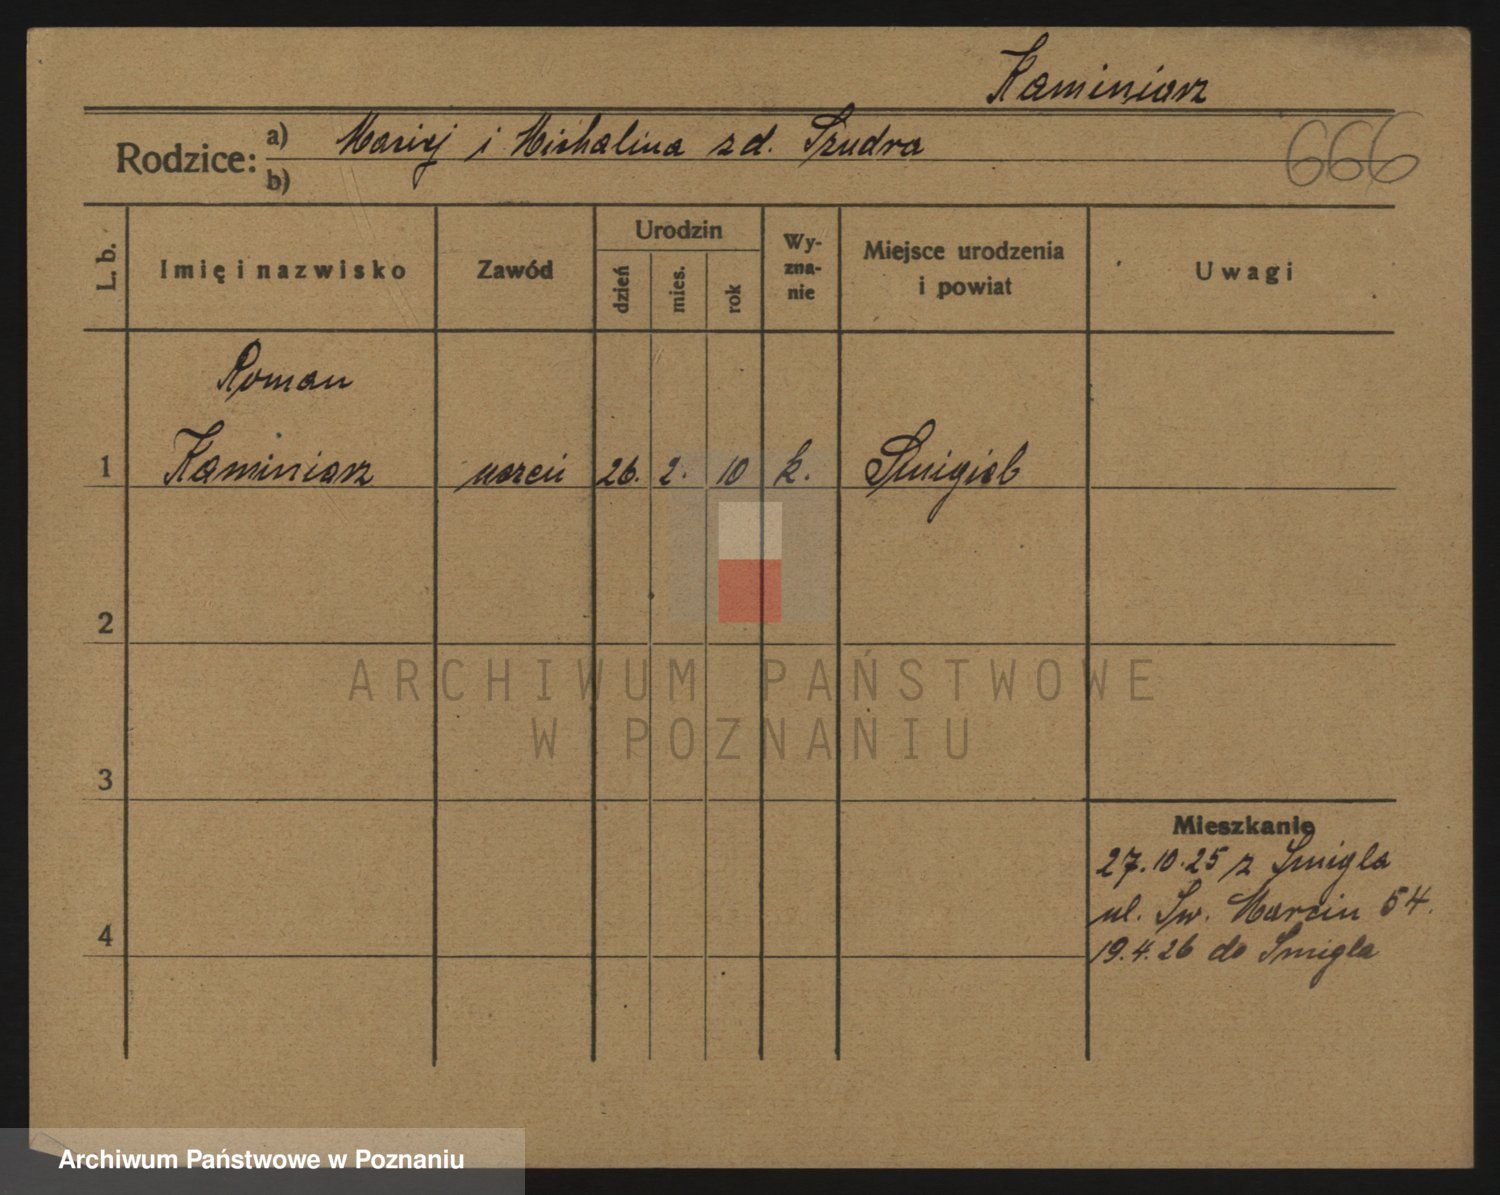 Kaminiarz
Rodzice: a) Maciej i Michalina zd. Szudra
b)
666
L. b.
Imię i nazwisko
Zawód
Urodzin
dzień
mies.
rok
Wy-
zna-
nie
Miejsce urodzenia
i powiat
Uwagi
Roman
1 Kaminiarz uczeń 26. 2. 10 k. Śmigiel
2
3
4
Mieszkanie
27.10.25 z Śmigla
ul. Św. Marcin 54.
19.4.26 do Śmigla
ARCHIWUM PAŃSTWOWE
W POZNANIU
Archiwum Państwowe w Poznaniu